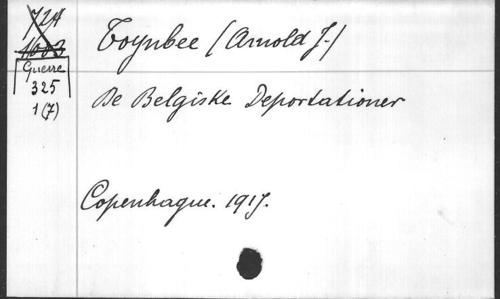 72A
1003
Guerre
325
1(7)
Toynbee (Arnold J.)
De Belgiske Deportationer
Copenhague. 1917.